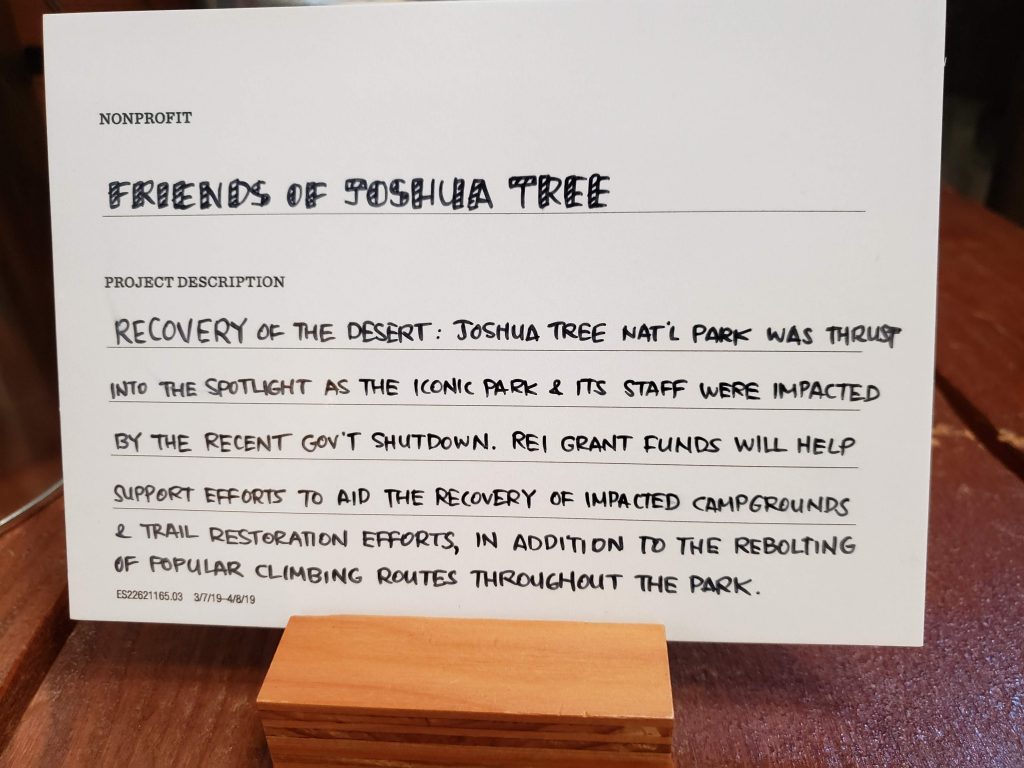 NONPROFIT
FRIENDS OF JOSHUA TREE
PROJECT DESCRIPTION
RECOVERY OF THE DESERT: JOSHUA TREE NAT'L PARK WAS THRUST
INTO THE SPOTLIGHT AS THE ICONIC PARK & ITS STAFF WERE IMPACTED
BY THE RECENT GOV'T SHUTDOWN. REI GRANT FUNDS WILL HELP
SUPPORT EFFORTS TO AID THE RECOVERY OF IMPACTED CAMPGROUNDS
& TRAIL RESTORATION EFFORTS, IN ADDITION TO THE REBOLTING
OF POPULAR CLIMBING ROUTES THROUGHOUT THE PARK.
ES22621165.03 3/7/19–4/8/19